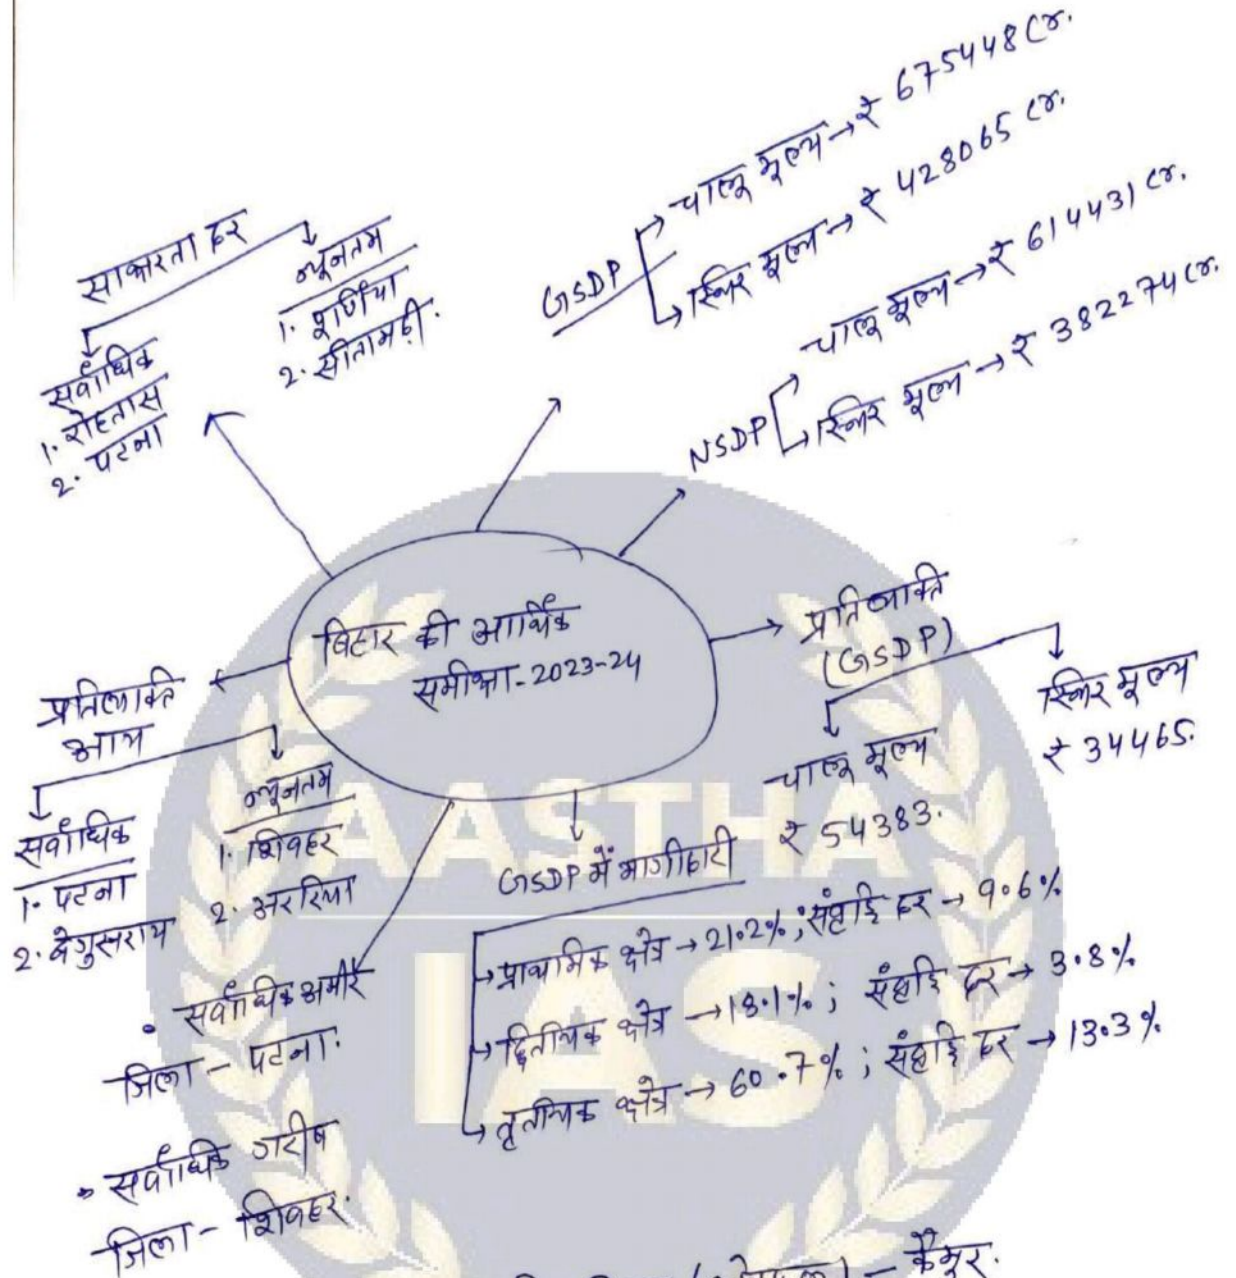 साक्षरता दर
सर्वाधिक
1. रोहतास
2. पटना
न्यूनतम
1. पूर्णिया
2. सीतामढ़ी.
GSDP
चालू मूल्य → ₹ 675448 Cr.
स्थिर मूल्य → ₹ 428065 Cr.
NSDP
चालू मूल्य → ₹ 614431 Cr.
स्थिर मूल्य → ₹ 382274 Cr.
बिहार की आर्थिक
समीक्षा - 2023-24
प्रतिव्यक्ति
(GSDP)
चालू मूल्य
₹ 54383.
स्थिर मूल्य
₹ 34465.
प्रतिव्यक्ति
आय
सर्वाधिक
1. पटना
2. बेगुसराय
न्यूनतम
1. शिवहर
2. अररिया
• सर्वाधिक अमीर
जिला - पटना.
• सर्वाधिक गरीब
जिला - शिवहर.
GSDP में भागीदारी
→ प्राथमिक क्षेत्र → 21.2% ; संवृद्धि दर → 9.6%
→ द्वितीयक क्षेत्र → 18.1% ; संवृद्धि दर → 3.8%
→ तृतीयक क्षेत्र → 60.7% ; संवृद्धि दर → 13.3%
– कैमूर.
AASTHA
IAS